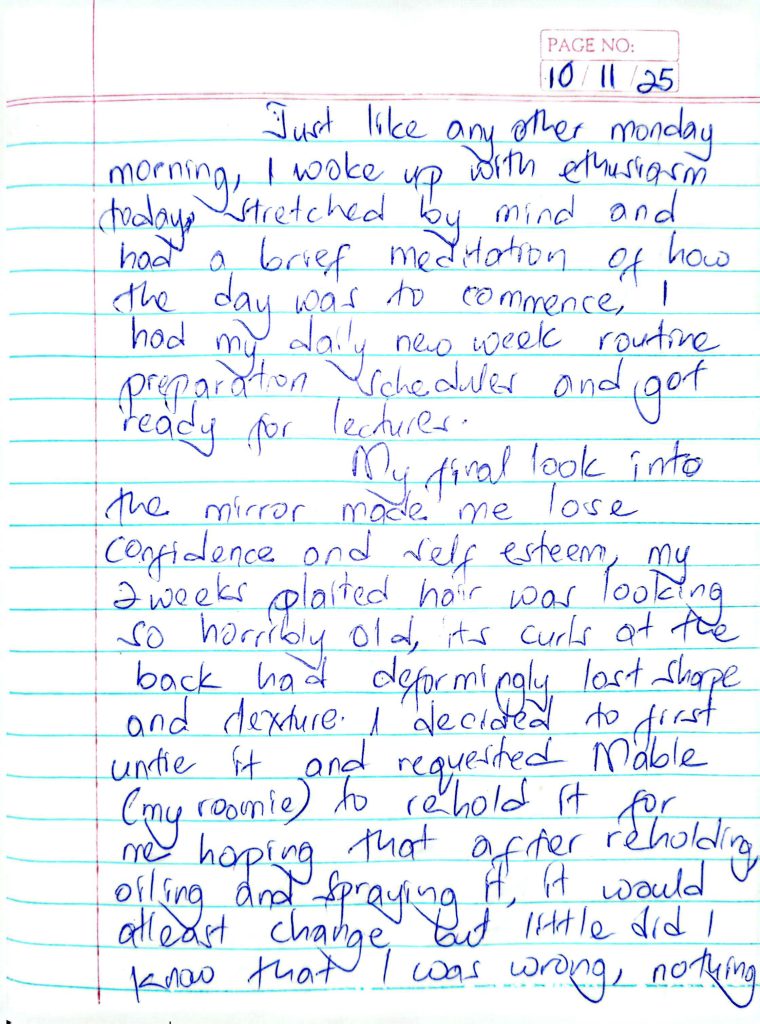 PAGE NO:
10 / 11 / 25
Just like any other monday
morning, I woke up with ethusiasm
today, stretched by mind and
had a brief meditation of how
the day was to commence, I
had my daily new week routine
preparation schedules and got
ready for lectures.
My final look into
the mirror made me lose
confidence and self esteem, my
2 weeks plaited hair was looking
so horribly old, its curls at the
back had deformingly lost shape
and texture. I decided to first
untie it and requested Mable
(my roomie) to rehold it for
me hoping that after reholding,
oiling and spraying it, it would
atleast change but little did I
know that I was wrong, nothing